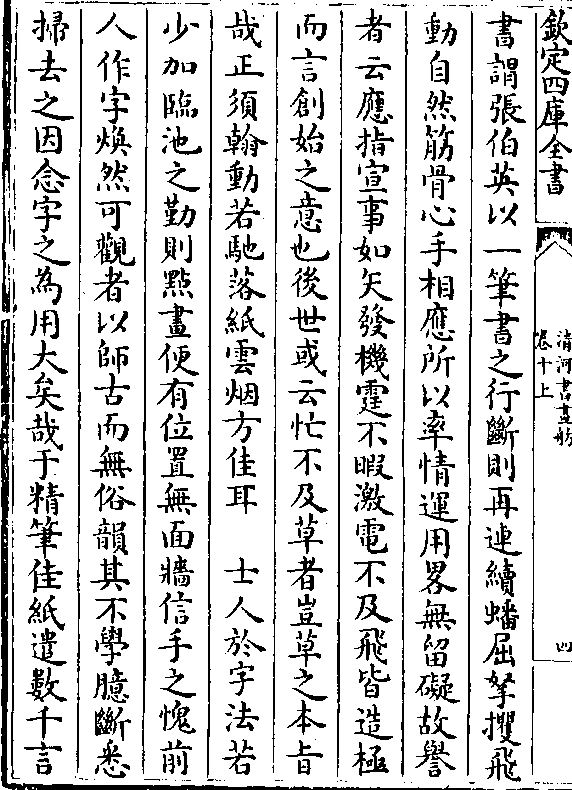 欽定四庫全書
清河書畫舫
卷十上
四
書謂張伯英以一筆書之行斷則再連續蟠屈拏攫飛
動自然筋骨心手相應所以率情運用畧無留礙故譽
者云應指宣事如矢發機霆不暇激電不及飛皆造極
而言創始之意也後世或云忙不及草者豈草之本旨
哉正須翰動若馳落紙雲烟方佳耳　士人於字法若
少加臨池之勤則點畫便有位置無面牆信手之愧前
人作字煥然可觀者以師古而無俗韻其不學臆斷悉
掃去之因念字之為用大矣哉于精筆佳紙遣數千言